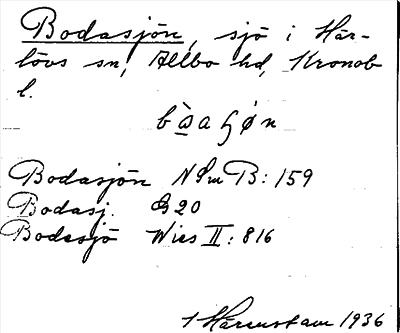 Bodasjön, sjö i Här-
lövs sn, Allbo hd, Kronob
l.
Bodasjön NSmB: 159
Bodasj. G 20
Bodasjö Wies II: 816
1 Härenstam 1936